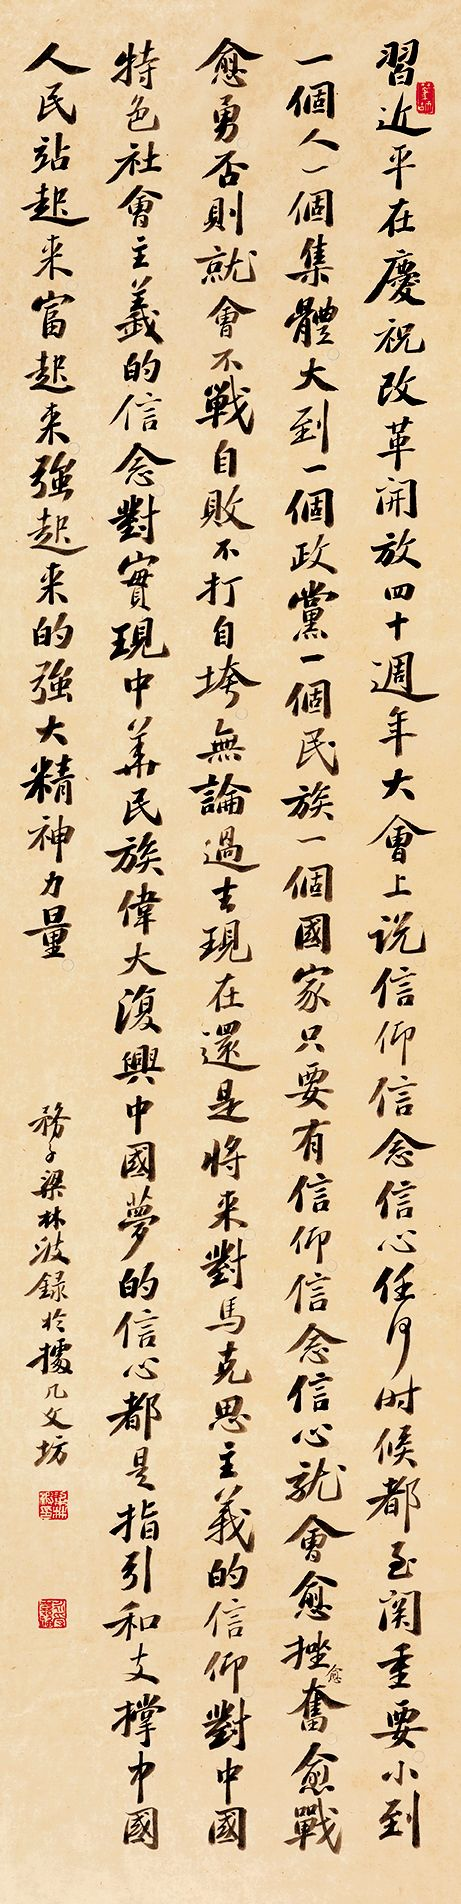 習近平在慶祝改革開放四十週年大會上说信仰信念信心任何时候都至関重要小到
一個人一個集體大到一個政黨一個民族一個國家只要有信仰信念信心就會愈挫愈奮愈戰
愈勇否則就會不戰自敗不打自垮無論過去現在還是將来對馬克思主義的信仰對中國
特色社會主義的信念對實現中華民族偉大復興中國夢的信心都是指引和支撑中國
人民站起来富起来強起来的強大精神力量
務子梁林波録於擂凡文坊